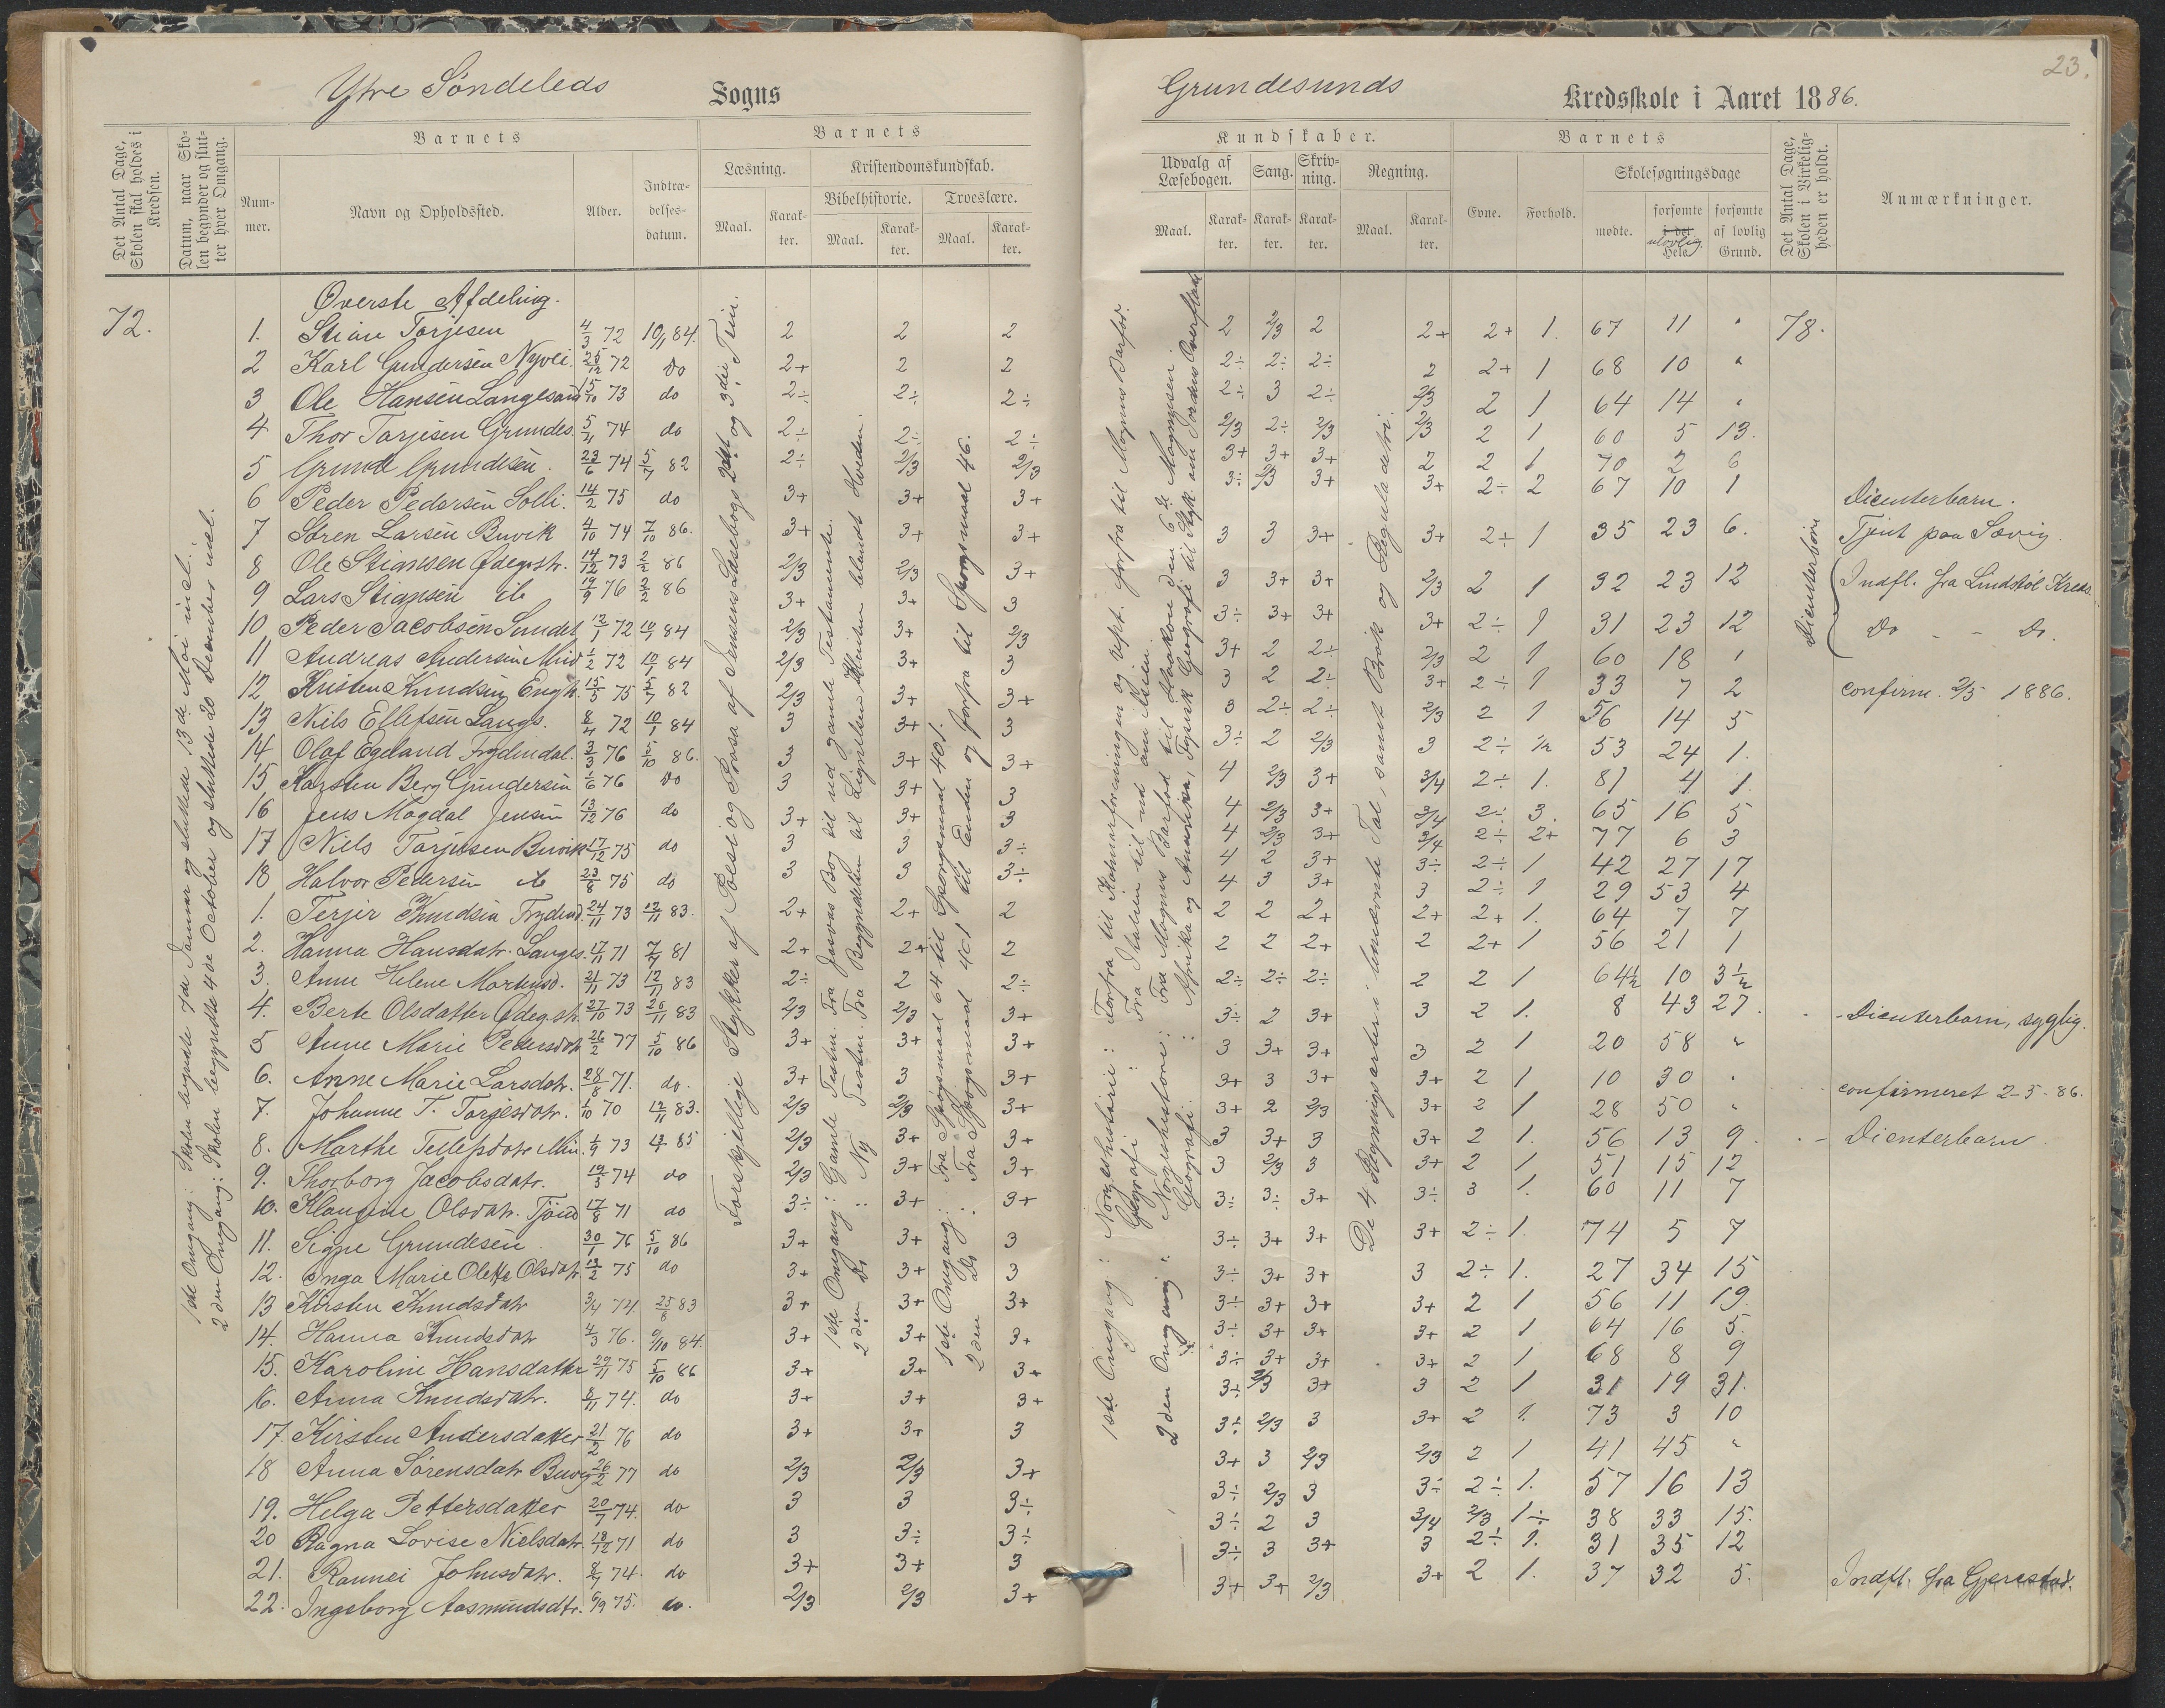 Ytre Søndeleds Sogns
Grundesunds Kredsskole i Aaret 1886.
23.
Det Antal Dage, Skolen skal holdes i Kredsen.
Datum, naar Skolen begynder og slutter hver Omgang.
Barnets
Nummer.
Navn og Opholdssted.
Alder.
Indtrædelsesdatum.
Barnets
Læsning.
Maal.
Karakter.
Kristendomskundskab.
Bibelhistorie.
Maal.
Karakter.
Troeslære.
Maal.
Karakter.
Kundskaber.
Udvalg af Læsebogen.
Maal.
Karakter.
Sang.
Karakter.
Skrivning.
Karakter.
Regning.
Maal.
Karakter.
Barnets
Evne.
Forhold.
Skolesøgningsdage
mødte.
forsømte i det ulovlig Hele
forsømte af lovlig Grund.
Det Antal Dage, Skolen i Virkeligheden er holdt.
Anmærkninger.
72.
1ste Omgang: Skolen begyndte 7de Januar og sluttede 13de Mai incl.
2den Omgang: Skolen begyndte 4de October og sluttede 20 December incl.
Forskjellige Stykker af Poesi og Prosa af Jensens Læsebogs 2det og 3die Trin.
1ste Omgang: Gamle Testm. Fra Josvas Bog til ud gamle Testamente.
2den Do : Ny Testm. Fra Begyndelsen til Lignelsen Klinten blandt Hveden.
1ste Omgang: Fra Spørgsmaal 64 til Spørgsmaal 401.
2den Do : Fra Spørgsmaal 401 til Enden og forfra til Spørgsmaal 46.
1ste Omgang: Norgeshistorie: Forfra til Kalmarforeningen og rept. forfra til Magnus Barfod.
Geografi : Fra Italien til ud om Asien.
2den Omgang: Norgeshistorie: Fra Magnus Barfod til Haakon den 6te Magnusen.
Geografi : Afrika og Amerika, Fysisk Geografi til Styk om Jordens Overflade
De 4 Regningsarter i benævnte Tal, samt Brøk og Reguladetri.
78.
Øverste Afdeling.
1. Stian Tarjesen 4/3 72 10/1 84. 2 2 2 2 2/3 2 2+ 2+ 1. 67 11 "
2 Karl Gundersen Nyvei. 25/12 72 do 2+ 2 2 2÷ 2÷ 2÷ 2 2+ 1 68 10 "
3 Ole Hansen Langesand 15/10 73 do 2÷ 2÷ 2÷ 2÷ 3 2÷ 2/3 2 1 64 14 "
4 Thor Tarjesen Grundes. 5/11 74 do 2÷ 2÷ 2÷ 2/3 2÷ 2/3 2/3 2 1 60 5 13.
5 Grunde Grundesen. 23/6 74 5/7 82 2÷ 2/3 2/3 3+ 3+ 3+ 2 2 1 70 2 6
6 Peder Pedersen Solli. 14/2 75 do 3+ 3+ 3+ 3÷ 2/3 3+ 3+ 2÷ 2 67 10 1 Dienterbarn.
7 Søren Larsen Buvik 4/10 74 7/10 86. 3+ 3+ 3+ 3 3 3+ 3+ 2÷ 1 35 23 6. Tjent paa Sævig.
8 Ole Stiansen Ødegr.str. 14/12 73 2/2 86 2/3 2/3 3+ 3 3+ 3+ 2/3 2 1 32 23 12 Dienterbørn Indfl. fra Lindstøl Kreds.
9 Lars Stiansen ib 19/9 76 2/2 86 3+ 3+ 3 3÷ 3+ 3+ 3+ 2÷ 1 31 23 12 Do - - Do.
10 Peder Jacobsen Sundet 12/1 72 10/1 84 2/3 3+ 2/3 3+ 2 2÷ 2/3 2 1 60 18 1
11 Andreas Andersen Mind 1/2 72 10/1 84 2/3 3+ 3 3 2 2÷ 3+ 2÷ 1 33 7 2 confirm. 2/5 1886.
12 Kristen Knudsen Engh. 15/5 75 5/7 82 2/3 3+ 3+ 3 2÷ 2÷ 2/3 2 1 56 14 5
13 Nils Ellefsen Langs. 8/4 72 10/1 84 3 3+ 3 3÷ 2 2/3 3 2÷ 1/2 53 24 1.
14 Olaf Egeland Frydendal. 3/3 76 5/10 86. 3 3+ 3+ 4 2/3 3+ 3/4 2÷ 1. 81 4 1.
15 Karsten Berg Gundersen 1/6 76 do 3 3+ 3 4 2/3 3+ 3/4 2÷ 3. 65 16 5
16 Jens Magdal Jensen 13/12 76 do 3+ 3+ 3 4 2/3 3+ 3/4 2÷ 2+ 77 6 3
17 Niels Tarjesen Buvik 17/12 75 do 3 3 3÷ 4 2 3+ 3÷ 2÷ 1 42 27 17
18 Halvor Pedersen ib 23/8 75 do 3 3 3÷ 4 3 3+ 3 2÷ 1 29 53 4
1. Terjer Knudsen Frydend. 24/11 73 12/11 83. 2+ 2+ 2 2 2 2+ 2+ 2+ 1. 64 7 7
2. Hanna Hansdatr. Langes. 17/11 71 7/7 81 2+ 2+ 2 2 2 2+ 2 2+ 1 56 21 1
3. Anne Helene Mortensd. 21/11 73 12/11 83 2÷ 2 2÷ 2÷ 2÷ 2÷ 2 2 1 64½ 10 3½
4. Berte Olsdatter Ødeg.str. 27/10 73 26/11 83 2/3 2/3 3+ 3÷ 2 3+ 3 2 1. 8 43 27. Dienterbarn, syglig.
5 Anne Marie Pedersdatr 26/2 77 5/10 86 3+ 3+ 3+ 3 3+ 3+ 3 2 1 20 58 "
6. Anne Marie Larsdatr. 28/8 71. do. 3+ 3 3+ 3+ 3 3+ 3+ 2 1 10 30 " confirmeret 2-5-86.
7. Johanne T. Tarjesdatr. 1/10 70 12/11 83. 2/3 2/3 3+ 3+ 2 2/3 3+ 2 1 28 50 "
8. Marthe Tellefsdatr Min. 1/9 73 85 2/3 3+ 3+ 3 3+ 3 3+ 2 1. 56 13 9. Dienterbarn.
9. Thorborg Jacobsdatr. 19/3 74 do 2/3 3+ 3+ 3 2/3 3 3+ 2 1. 51 15 12
10. Klaugine Olsdatr. 17/8 71 do 3÷ 3+ 3+ 3÷ 3÷ 3+ 3÷ 3 1. 60 11 7
11. Signe Grundesen 30/1 76 5/10 86 3+ 3+ 3 3÷ 3+ 3+ 3+ 2÷ 1. 74 5 7
12. Inga Marie Olette Olsdatr. 13/2 75 do 3+ 3+ 3 3÷ 3+ 3+ 3 2÷ 1. 27 34 15
13 Kirsten Knudsdatr 3/4 74. 25/8 83 3+ 3+ 3+ 3÷ 3+ 3+ 3+ 2 1 56 11 19.
14. Hanna Knudsdatr 4/3 76. 9/10 84. 3+ 3+ 3+ 3÷ 3+ 3+ 3+ 2 1 64 16 5.
15. Karoline Hansdatter 29/11 75 5/10 86 3+ 3+ 3+ 3÷ 3+ 3+ 3+ 2 1 68 8 9
16. Anna Knudsdatr. 8/11 74. do 3+ 3+ 3+ 3÷ 2/3 3+ 3 2 1 31 19 31.
17. Kirsten Andersdatter 21/2 76 do 3+ 3+ 3 3÷ 2/3 3 3+ 2 1. 73 3 10
18 Anna Sørensdatr Buvig 26/2 77 do 2/3 2/3 3+ 3+ 3 2/3 2/3 2 1 41 45 "
19. Helga Pettersdatter 20/7 74. do 3 3 3÷ 3÷ 2/3 3 3÷ 2÷ 1. 57 16 13
20 Ragna Lovise Nielsdatr. 18/12 71 do 3 3÷ 3÷ 3÷ 2 3 3/4 2/3 1÷ 38 33 15.
21. Rannei Johnsdatr. 8/7 74. do 3+ 3+ 3 3÷ 3 3+ 3 2÷ 1. 31 35 12
22. Ingeborg Aasmundsdtr. 6/9 75. do. 2/3 2/3 3+ 3+ 3+ 2/3 3+ 2 1. 37 32 5. Indfl. fra Gjerestad.